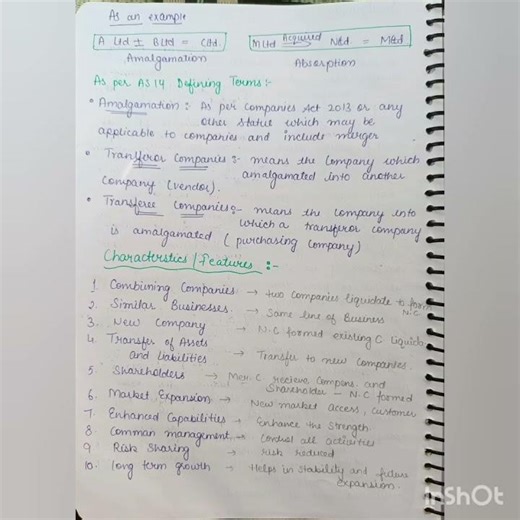 As an example
A Ltd ± B Ltd = C Ltd.
Amalgamation
M Ltd Acquired N Ltd = M Ltd
Absorption
As per AS 14 Defining Terms :-
• Amalgamation : As per companies Act 2013 or any
other statue which may be
applicable to companies and include merger
• Transferor Companies :- means the Company which
amalgamated into another
company (vendor).
• Transferee Companies :- means the company into
which a transferor company
is amalgamated ( purchasing company)
Characterstics / Features :-
1. Combining Companies → two companies liquidate to form N.C
2. Similar Businesses → Same line of Business
3. New Company → N.C formed existing C liquid
4. Transfer of Assets
and Liabilities → Transfer to new Companies.
5. Shareholders → Mer. C recieve Compens. and
Shareholder – N.C formed
6. Market Expansion → New market access, customer
7. Enhanced Capabilities → Enhance the Strength
8. Comman management → all activities
9. Risk Sharing → risk reduced
10. long term growth → Helps in stability and future
expansion.
InShOt